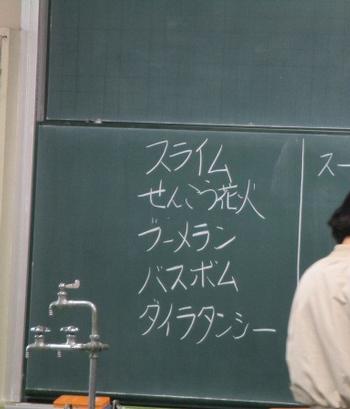 スライム
せんこう花火
ブーメラン
バスボム
ダイラタンシー
スー